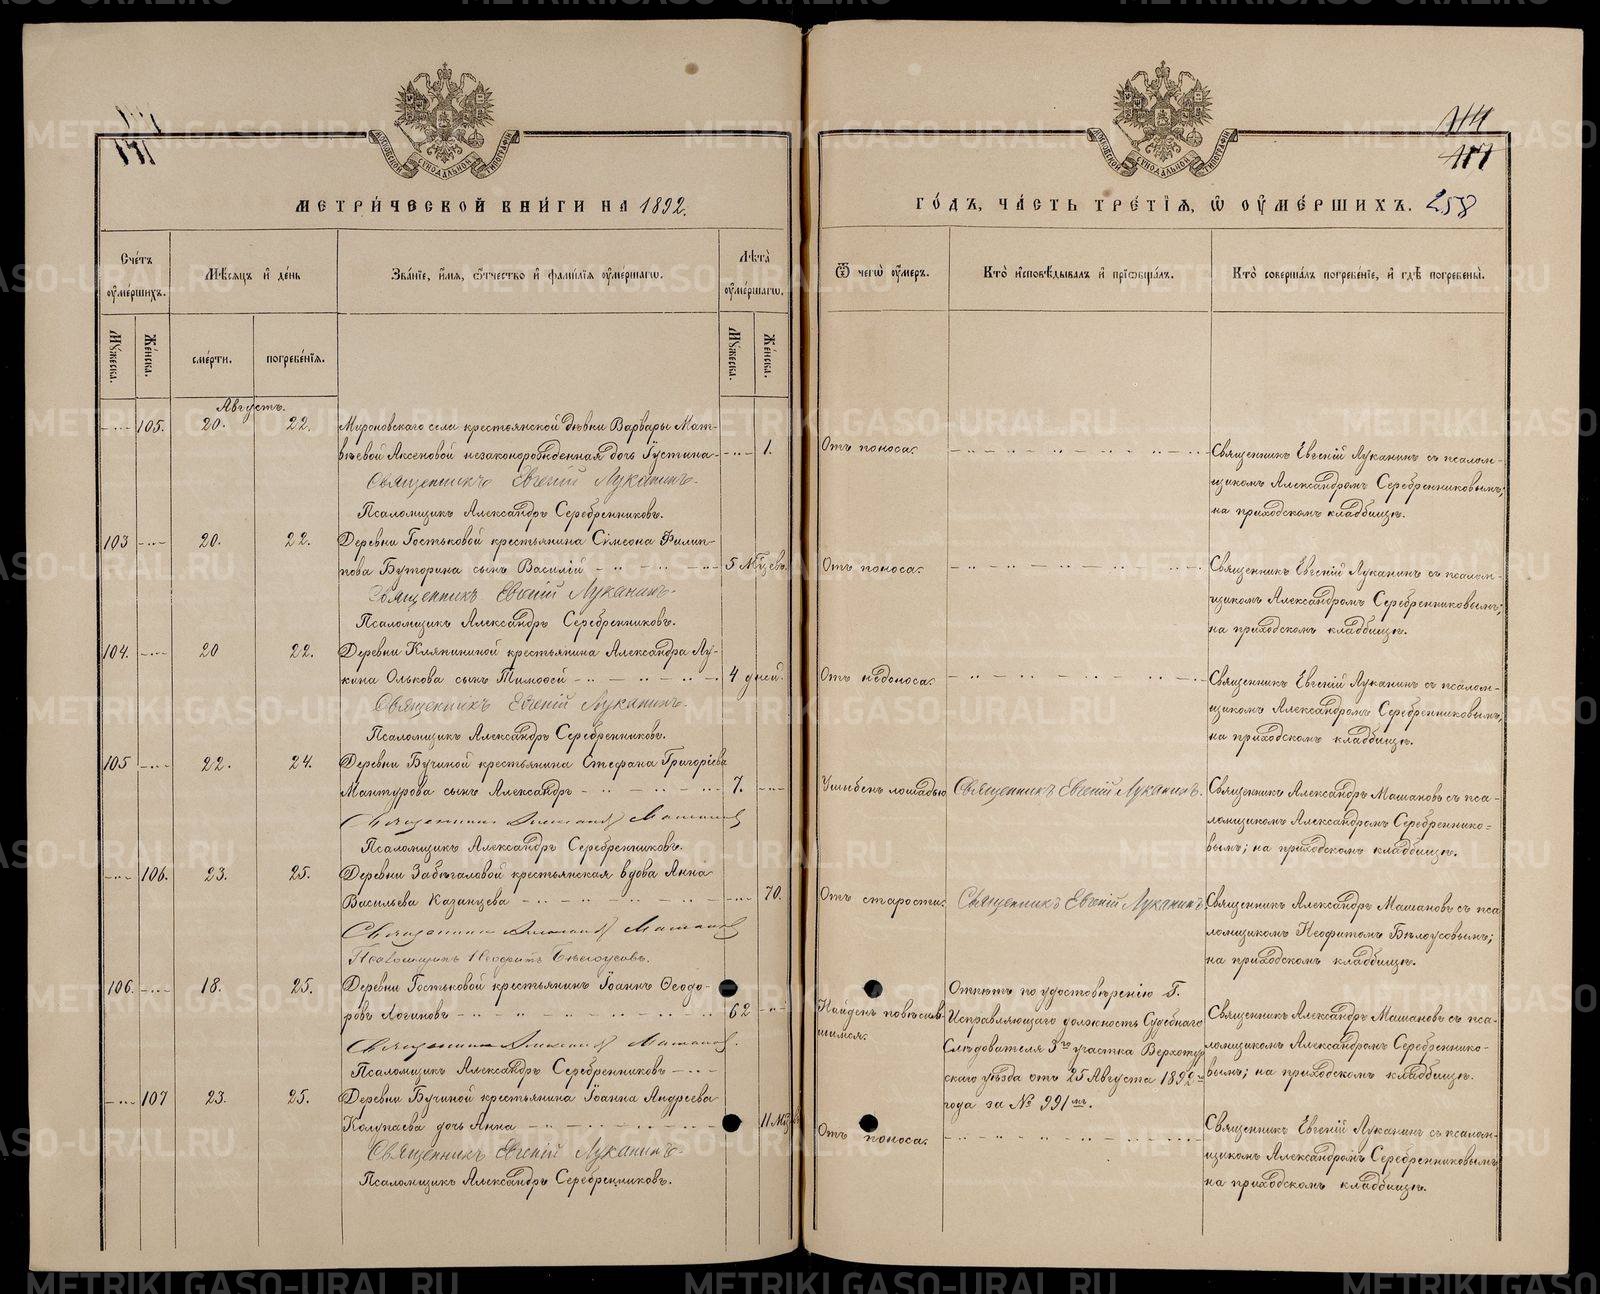 МЕТРИ́ЧЕСКОЙ КНИ́ГИ НА 1892.
Сче́тъ ᲂу҆ме́ршихъ.
Мѣ́сяцъ и҆ де́нь
Зва́нїе, и҆́мя, ѻ҆́тчество и҆ фами́лїя ᲂу҆ме́ршагѡ.
Лѣ́та ᲂу҆ме́ршагѡ.
Мꙋ́жеска.
Же́нска.
сме́рти.
погребе́нїя.
Мꙋ́жеска.
Же́нска.
Августъ.
105. 20. 22. Мироновскаго села крестьянской дѣвки Варвары Мат-
вѣевой Аксеновой незаконорожденная дочь Іустина 1.
Священникъ Евгеній Луканинъ.
Псаломщикъ Александръ Серебренниковъ.
103 20. 22. Деревни Гостьковой крестьянина Сѵмеона Филип-
пова Буторина сынъ Василій 5 мѣсцевъ
Священникъ Евгеній Луканинъ.
Псаломщикъ Александръ Серебренниковъ.
104. 20 22. Деревни Кляпининой крестьянина Александра Лу-
кина Олькова сынъ Тимоѳей 4 дней.
Священникъ Евгеній Луканинъ.
Псаломщикъ Александръ Серебренниковъ.
105 22. 24. Деревни Бучиной крестьянина Стефана Григоріева
Мантурова сынъ Александръ 7.
Священникъ Александръ Машановъ
Псаломщикъ Александръ Серебренниковъ.
106. 23. 25. Деревни Забѣгаловой крестьянская вдова Анна
Васильева Казанцева 70.
Священникъ Александръ Машановъ
Псаломщикъ Неофитъ Бѣлоусовъ.
106. 18. 25. Деревни Гостьковой крестьянинъ Іоаннъ Ѳеодо-
ровъ Логиновъ 62
Священникъ Александръ Машановъ.
Псаломщикъ Александръ Серебренниковъ
107 23. 25. Деревни Бучиной крестьянина Іоанна Андреева
Колупаева дочь Анна 11 мѣс
Священникъ Евгеній Луканинъ
Псаломщикъ Александръ Серебренниковъ.
114
117
ГО́ДЪ, ЧА́СТЬ ТРЕ́ТЇѦ, Ѡ҆ ОУ҆МЕ́РШИХЪ. 258
Ѿ чегѡ̀ ᲂу҆́меръ.
Кто̀ и҆сповѣ́дывалъ и҆ прїѡбща́лъ.
Кто̀ соверша́лъ погребе́нїе, и҆ гдѣ̀ погребены̀.
Отъ поноса. Священникъ Евгеній Луканинъ съ псалом-
щикомъ Александромъ Серебренниковымъ;
на приходскомъ кладбищѣ.
Отъ поноса. Священникъ Евгеній Луканинъ съ псалом-
щикомъ Александромъ Серебренниковымъ;
на приходскомъ кладбищѣ.
Отъ недоноса. Священникъ Евгеній Луканинъ съ псалом-
щикомъ Александромъ Серебренниковымъ,
на приходскомъ кладбищѣ.
Ушибенъ лошадью Священникъ Евгеній Луканинъ. Священникъ Александръ Машановъ съ пса-
ломщикомъ Александромъ Серебреннико-
вымъ; на приходскомъ кладбищѣ.
Отъ старости. Священникъ Евгеній Луканинъ Священникъ Александръ Машановъ съ пса
ломщикомъ Неофитомъ Бѣлоусовымъ;
на приходскомъ кладбищѣ.
Найденъ повѣсив-
шимся.
Отпѣтъ по удостовѣренію Г.
Исправляющаго должность Судебнаго
Слѣдователя 3го участка Верхотур
скаго уѣзда отъ 25 Августа 1892
года за № 991мъ.
Священникъ Александръ Машановъ съ пса-
ломщикомъ Александромъ Серебреннико-
вымъ; на приходскомъ кладбищѣ.
Отъ поноса. Священникъ Евгеній Луканинъ съ псалом-
щикомъ Александромъ Серебренниковымъ
на приходскомъ кладбищѣ.
METRIKI.GASO-URAL.RU